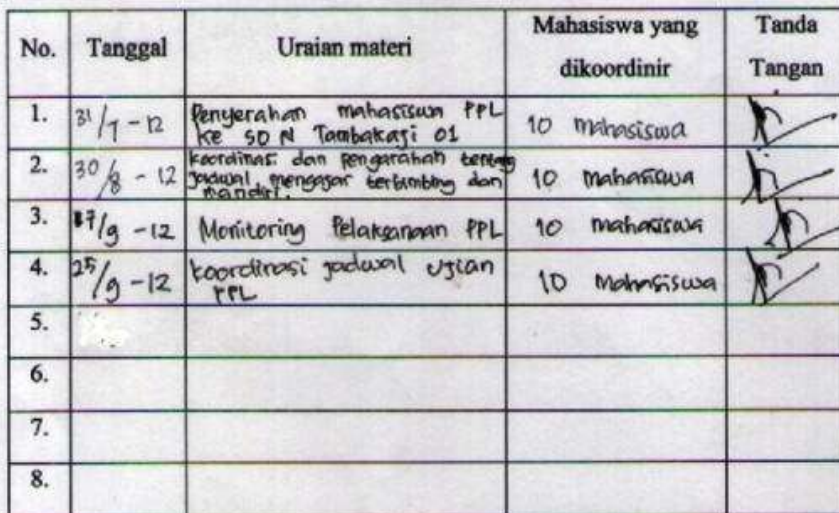 No. Tanggal Uraian materi Mahasiswa yang dikoordinir Tanda Tangan
1. 31/7 - 12 Penyerahan mahasiswa PPL
ke SD N Tambakaji 01 10 mahasiswa
2. 30/8 - 12 koordinasi dan pengarahan tentang
jadwal mengajar terbimbing dan
mandiri. 10 mahasiswa
3. 17/9 - 12 Monitoring Pelaksanaan PPL 10 mahasiswa
4. 25/9 - 12 koordinasi jadwal ujian
PPL 10 mahasiswa
5.
6.
7.
8.